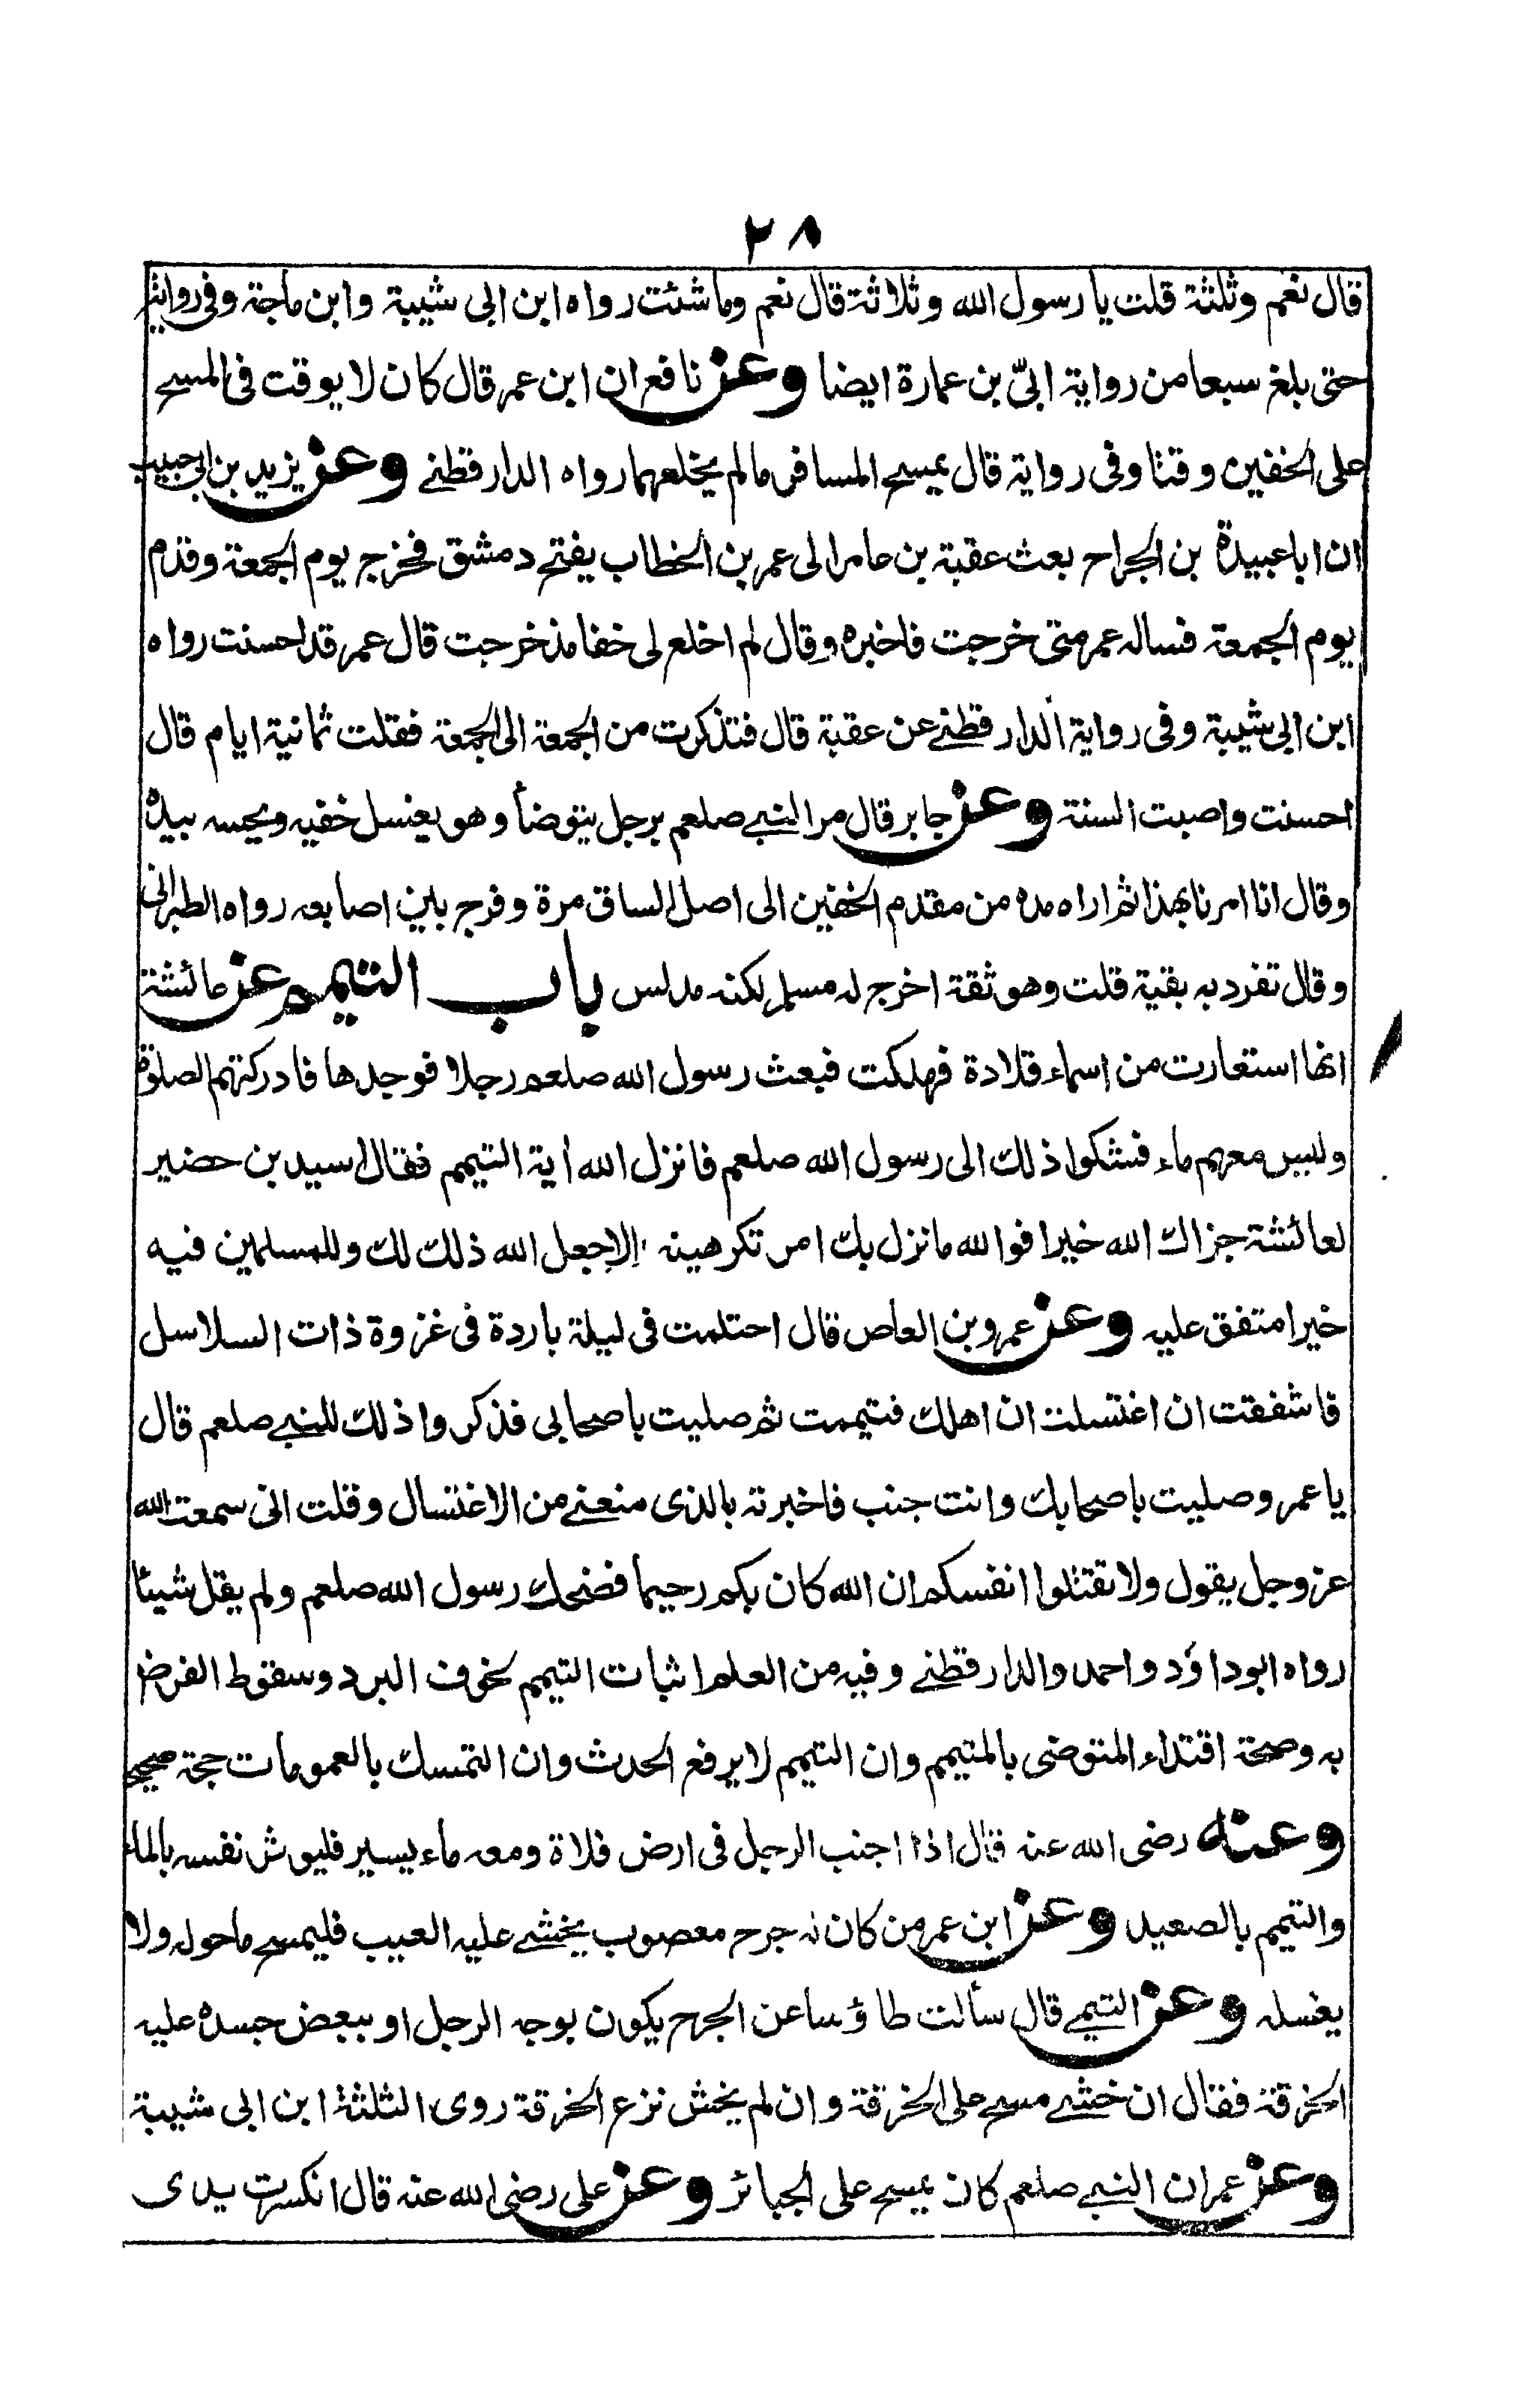 ٢٨
قال نعم وثلثة قلت يا رسول الله وثلاثة قال نعم وما شئت رواه ابن ابى شيبة وابن ماجة وفى رواية
حتى بلغ سبعا من رواية ابىّ بن عمارة ايضا وعن نافع ان ابن عمر قال كان لا يوقت فى المسح
على الخفين وقتا وفى رواية قال يمسح المسافر ما لم يخلعهما رواه الدارقطنے وعن يزيد بن ابى حبيب
ان ابا عبيدة بن الجراح بعث عقبة بن عامر الى عمر بن الخطاب يفتح دمشق فخرج يوم الجمعة وقدم
يوم الجمعة فساله عمر متى خرجت فاخبره وقال لم اخلع لى خفا مذ خرجت قال عمر قد احسنت رواه
ابن ابى شيبة وفى رواية الدارقطنے عن عقبة قال فتذكرت من الجمعة الى الجمعة فقلت ثمانية ايام قال
احسنت واصبت السنة وعن جابر قال مر النبے صلعم برجل يتوضأ وهو يغسل خفيه ويحسه بيده
وقال انا امرنا بهذا ثم اراه مده من مقدم الخفين الى اصل الساق مرة وفرج بين اصابعه رواه الطبرانى
وقال تفرد به بقية قلت وهو ثقة اخرج له مسلم لكنه مدلس باب التيمم وعن عائشة
انها استعارت من اسماء قلادة فهلكت فبعث رسول الله صلعم رجلا فوجدها فادركتهم الصلوة
وليس معهم ماء فشكوا ذلك الى رسول الله صلعم فانزل الله اية التيمم فقال اسيد بن حضير
لعائشة جزاك الله خيرا فوالله ما نزل بك امر تكرهينه الا جعل الله ذلك لك وللمسلمين فيه
خيرا متفق عليه وعن عمرو بن العاص قال احتلمت فى ليلة باردة فى غزوة ذات السلاسل
فاشفقت ان اغتسلت ان اهلك فتيممت ثم صليت باصحابى فذكروا ذلك للنبے صلعم قال
يا عمر وصليت باصحابك وانت جنب فاخبرته بالذى منعنے من الاغتسال وقلت انى سمعت الله
عز وجل يقول ولا تقتلوا انفسكم ان الله كان بكم رحيما فضحك رسول الله صلعم ولم يقل شيئا
رواه ابو داؤد واحمد والدارقطنے وفيه من العلم اثبات التيمم لخوف البرد وسقوط الفرض
به وصحة اقتداء المتوضى بالمتيمم وان التيمم لا يرفع الحدث وان التمسك بالعمومات حجة صحيحة
وعنه رضى الله عنه قال اذا اجنب الرجل فى ارض فلاة ومعه ماء يسير فليوش نفسه بالماء
والتيمم بالصعيد وعن ابن عمر من كان له جرح معصوب يخشے عليه العيب فليمسح ما حوله ولا
يغسله وعن التيمے قال سألت طاؤسا عن الجرح يكون بوجه الرجل او ببعض جسده عليه
الخرقة فقال ان خشے مسح على الخرقة وان لم يخش نزع الخرقة روى الثلثة ابن ابى شيبة
وعن عمر ان النبے صلعم كان يمسح على الجبائر وعن على رضى الله عنه قال انكسرت يدى